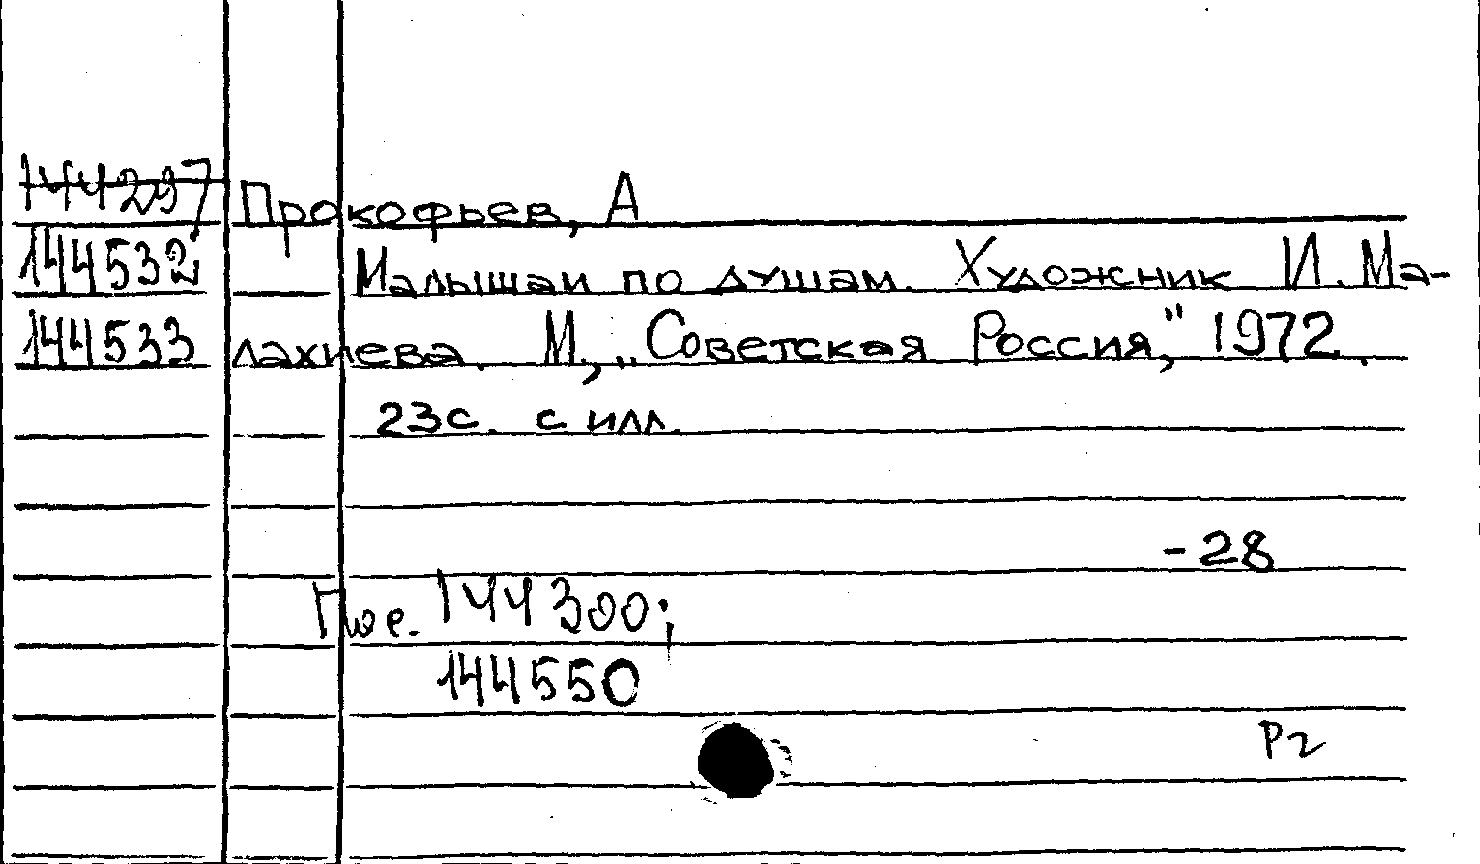 144297 Прокофьев, А
144532 Малышам по душам. Художник И. Ма-
144533 лахиева. М, „Советская Россия," 1972.
23с. с илл.
-28
144300;
144550
Р2